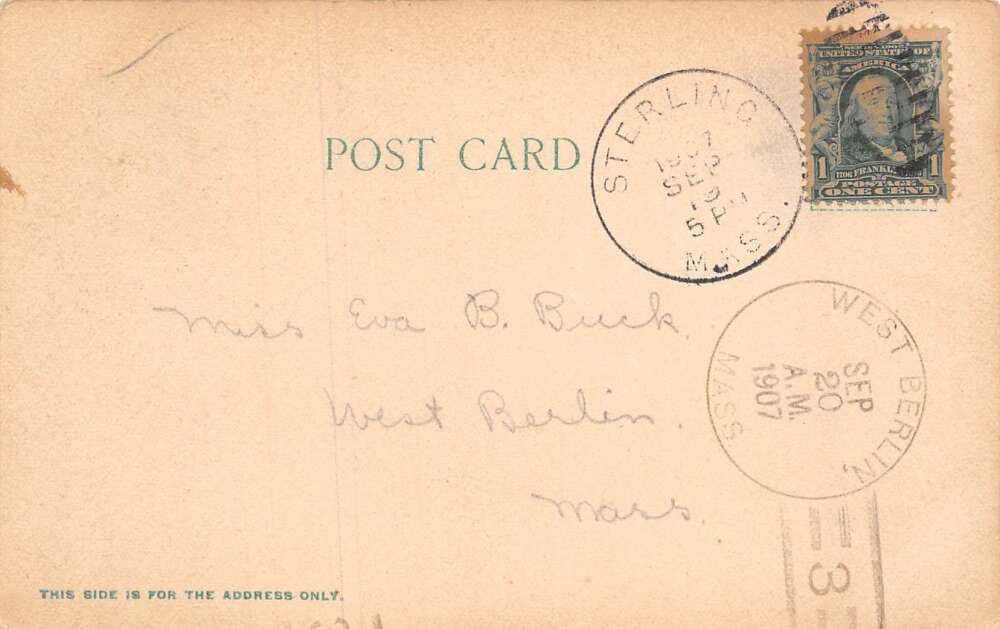 POST CARD
SERIES 1902
UNITED STATES OF
AMERICA
1706 FRANKLIN 1790
1 POSTAGE 1
ONE CENT
STERLING
1907
SEP
19
5 PM
MASS.
Miss Eva B. Buck.
West Berlin.
Mass.
WEST BERLIN,
SEP
20
A.M.
1907
MASS
3
THIS SIDE IS FOR THE ADDRESS ONLY.